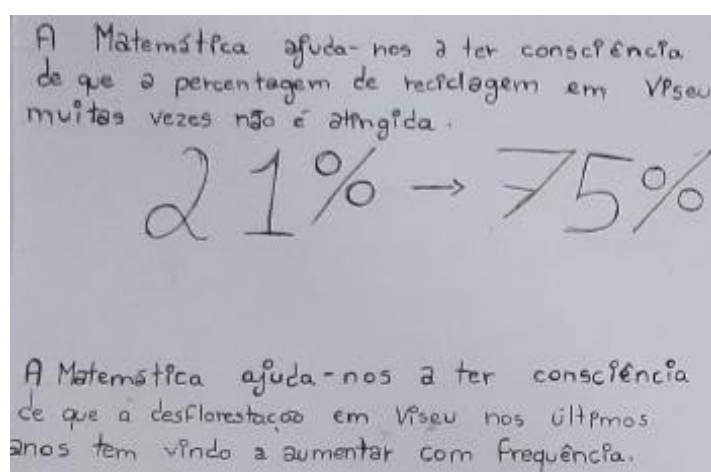 A Matemática ajuda-nos a ter consciência
de que a percentagem de reciclagem em Viseu
muitas vezes não é atingida.
21% → 75%
A Matemática ajuda-nos a ter consciência
de que a desflorestação em Viseu nos últimos
anos tem vindo a aumentar com frequência.